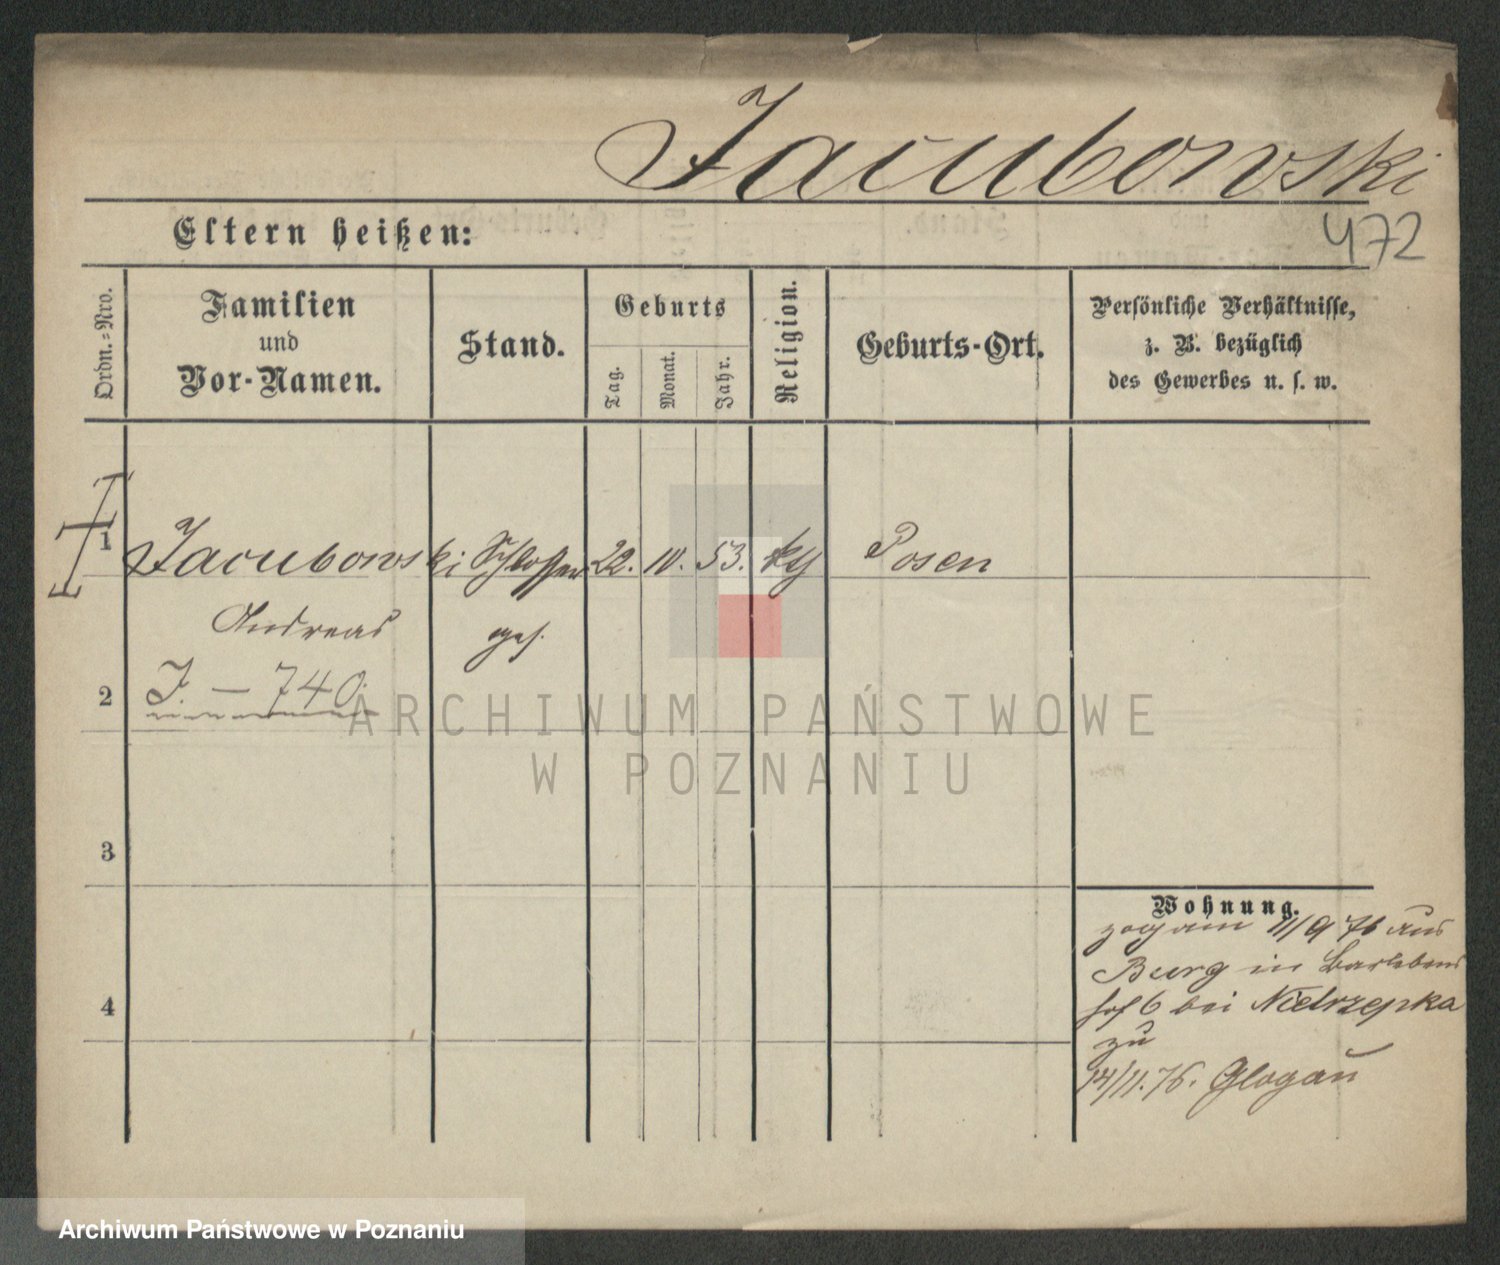 Jacubowski
472
Eltern heißen:
Ordn.=Nro.
Familien
und
Vor-Namen.
Stand.
Geburts
Tag.
Monat.
Jahr.
Religion.
Geburts-Ort.
Persönliche Verhältnisse,
z. B. bezüglich
des Gewerbes u. s. w.
1 Jacubowski Schlosser 22. 10. 53. kth Posen
Andreas ges.
2 J. — 740.
3
4
Wohnung.
zog am 11/9 76 aus
Burg in Barlebens
hof 6 bei Nietrzepka
zu
14/11. 76. Glogau
ARCHIWUM PAŃSTWOWE
W POZNANIU
Archiwum Państwowe w Poznaniu